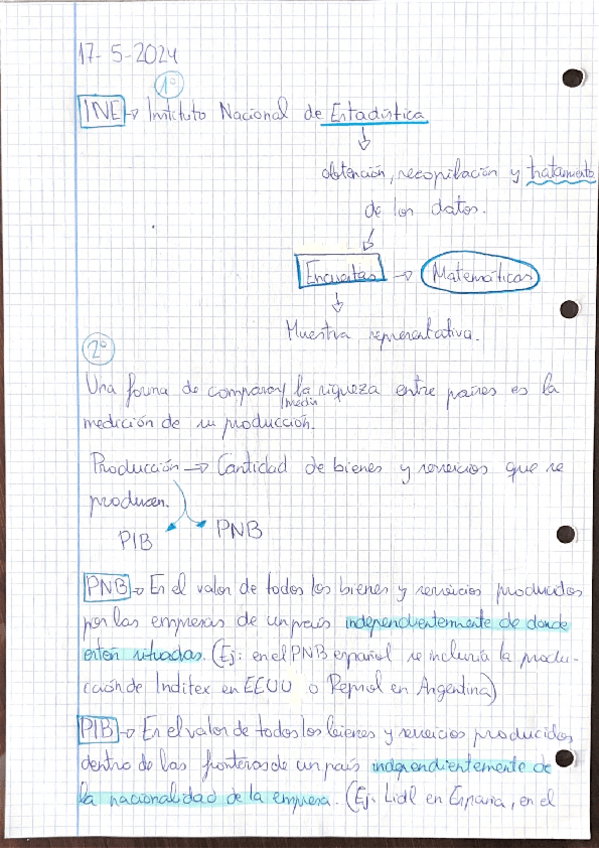 17-5-2024
1º
INE → Instituto Nacional de Estadística
obtención, recopilación y tratamiento
de los datos.
Encuestas → Matemáticas
Muestra representativa.
2º
Una forma de comparar/ la riqueza entre países es la
/medir
medición de su producción.
Producción → Cantidad de bienes y servicios que se
producen.
PIB PNB
PNB → Es el valor de todos los bienes y servicios producidos
por las empresas de un país independientemente de donde
estén situadas. (Ej: en el PNB español se incluiría la produ-
cción de Inditex en EEUU o Repsol en Argentina)
PIB → Es el valor de todos los bienes y servicios producidos
dentro de las fronteras de un país independientemente de
la nacionalidad de la empresa. (Ej: Lidl en España, en el